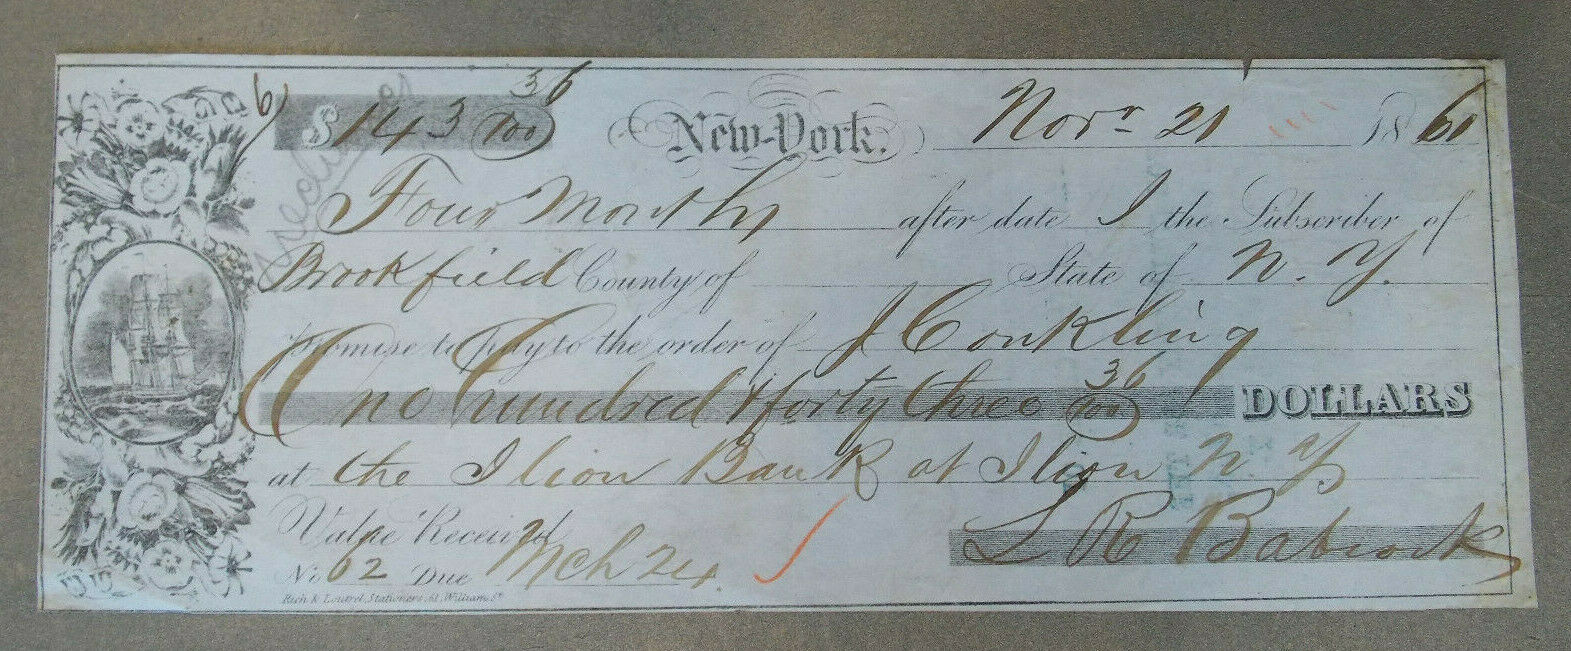 $ 143 36/100 New-York. Novr 21 1860
Four Months after date I the Subscriber of
Brookfield County of State of N. Y.
promise to pay to the order of J Conkling
One hundred & forty three 36/100 DOLLARS
at the Ilion Bank at Ilion N Y
Value Received
No 62 Due Mch 24 L R Babcock
Rich & Loutrel, Stationers, 61, William, St.